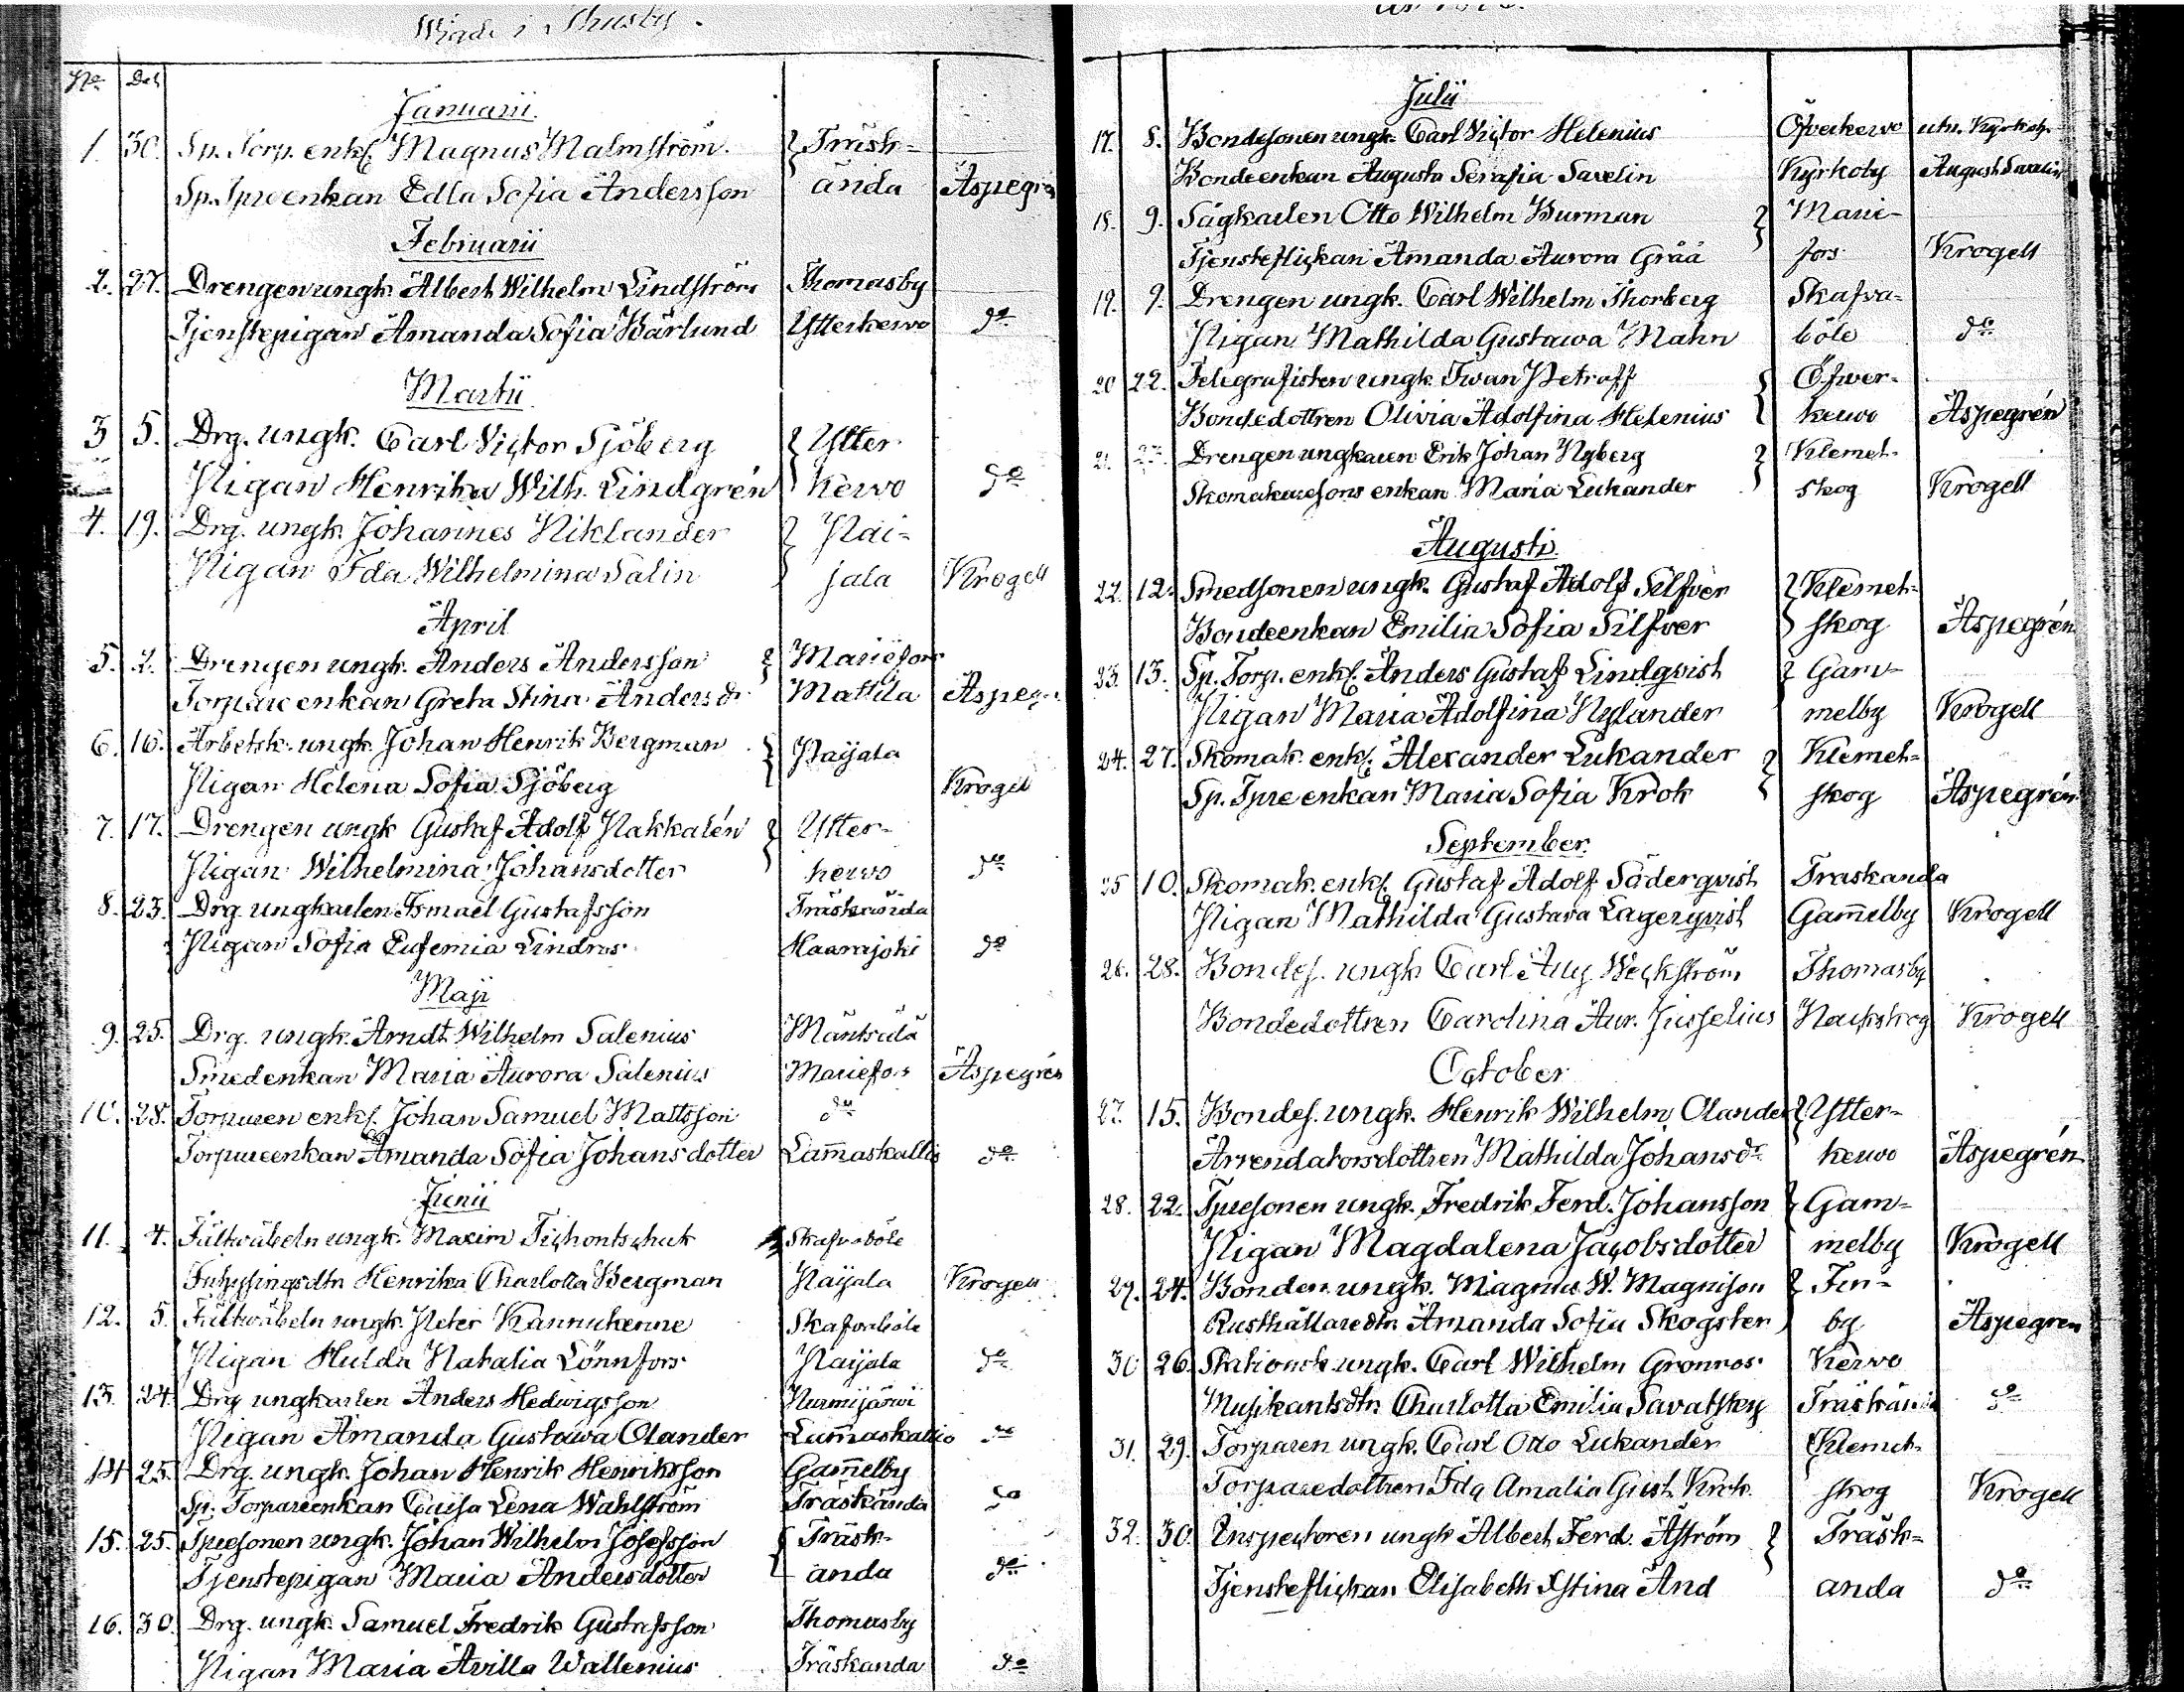 Wigde i Thusby.
No Dat
Januarii.
1. 30. Sp. Torp. enkl. Magnus Malmström. Träsk-
Sp. Tpre enkan Edla Sofia Andersson ända Aspegrén
Februarii
2. 27. Drengen ungk. Albert Wilhelm Lindström Thomasby
Tjenstepigan Amanda Sofia Kärlund Ytterkerwo do
Martii
3 5. Drg. ungk. Carl Victor Sjöberg Ytter
Pigan Henrika Wilh. Lindgrén kerwo do
4. 19. Drg. ungk. Johannes Niklander Pai-
Pigan Ida Wilhelmina Salin jala Krogell
April
5. 2. Drengen ungk. Anders Andersson Mariefors
Torpare enkan Greta Stina Anders dr Mattila Aspeg
6. 16. Arbetsk. ungk. Johan Henrik Bergman Paijala
Pigan Helena Sofia Sjöberg Krogell
7. 17. Drengen ungk Gustaf Adolf Pakkalén Ytter-
Pigan Wilhelmina Johansdotter kerwo do
8. 23. Drg. ungkarlen Ismael Gustafsson Träskända
Pigan Sofia Eufemia Lindros Haarajoki do
Maji
9. 25. Drg. ungk. Arndt Wilhelm Salenius Mäntsälä
Smedenkan Maria Aurora Salenius Mariefors Aspegrén
10. 28. Torparen enkl. Johan Samuel Mattsson do
Torpareenkan Amanda Sofia Johansdotter Lam̄askallio do
Junii
11. 4. Fältwäbeln ungk. Maxim Tichontschuk Skafvaböle
Inhysingsdtn Henrika Charlotta Bergman Paijala Krogell
12. 5. Fältwäbeln ungk. Peter Kannukenne Skafvaböle
Pigan Hulda Natalia Lönnfors Paijala do
13. 24. Drg ungkarlen Anders Hedwigsson Nurmijärwi
Pigan Amanda Gustawa Olander Lam̄askallio do
14 25. Drg. ungk. Johan Henrik Henriksson Gam̄elby
Sp. Torpareenkan Caisa Lena Wahlström Träskända do
15. 25. Tpresonen ungk. Johan Wilhelm Josefsson Träsk-
Tjenstepigan Maria Andersdotter anda do
16. 30. Drg. ungk. Samuel Fredrik Gustafsson Thomasby
Pigan Maria Avilla Wallenius Träskanda do
Julii
17. 8. Bondesonen ungk. Carl Victor Helenius Öfverkervo utn. Kyrkoh.
Bondeenkan Augusta Serafia Savelin Kyrkoby August Savelin
18. 9. Sågkarlen Otto Wilhelm Burman Marie-
Tjensteflickan Amanda Aurora Gråå fors Krogell
19. 9. Drengen ungk. Carl Wilhelm Thorberg Skafva-
Pigan Mathilda Gustawa Mahn böle do
20 22. Telegrafisten ungk. Iwan Petroff Öfwer-
Bondedottren Olivia Adolfina Helenius kerwo Aspegrén
21. Drengen ungkaren Erik Johan Nyberg Klemet-
Skomakaresons enkan Maria Lukander skog Krogell
Augusti.
22. 12. Smedsonen ungk. Gustaf Adolf Silfver Klemet-
Bondeenkan Emilia Sofia Silfver skog Aspegrén
23. 13. Sp. Torp. enkl. Anders Gustaf Lindqvist Gam-
Pigan Maria Adolfina Nylander melby Krogell
24. 27. Skomak. enkl. Alexander Lukander Klemet-
Sp. Tpre enkan Maria Sofia Krok skog Aspegrén
September
25 10. Skomak. enkl. Gustaf Adolf Söderqvist Traskanda
Pigan Mathilda Gustava Lagerqvist Gam̄elby Krogell
26. 28. Bondes. ungk. Carl Aug. Weckström Thomasby
Bondedottren Carolina Aur. Jusselius Nackskog Krogell
October
27. 15. Bondes. ungk. Henrik Wilhelm Olander Ytter-
Arrendatorsdottren Mathilda Johansdr kerwo Aspegrén
28. 22. Tpresonen ungk. Fredrik Ferd. Johansson Gam-
Pigan Magdalena Jacobsdotter melby Krogell
29. 24. Bonden ungk. Magnus W. Magnison Fin-
Rusthållaredtn Amanda Sofia Skogster by Aspegren
30 26. Stationsk. ungk. Carl Wilhelm Gronros Kervo
Musikantsdtn Charlotta Emilia Savatsky Träskända do
31. 29. Torparen ungk. Carl Otto Lukander Klemet-
Torparedottren Ida Amalia Gust. Krok skog Krogell
32. 30. Inspectoren ungk Albert Ferd. Åström Träsk-
Tjensteflickan Elisabeth Xstina And anda do